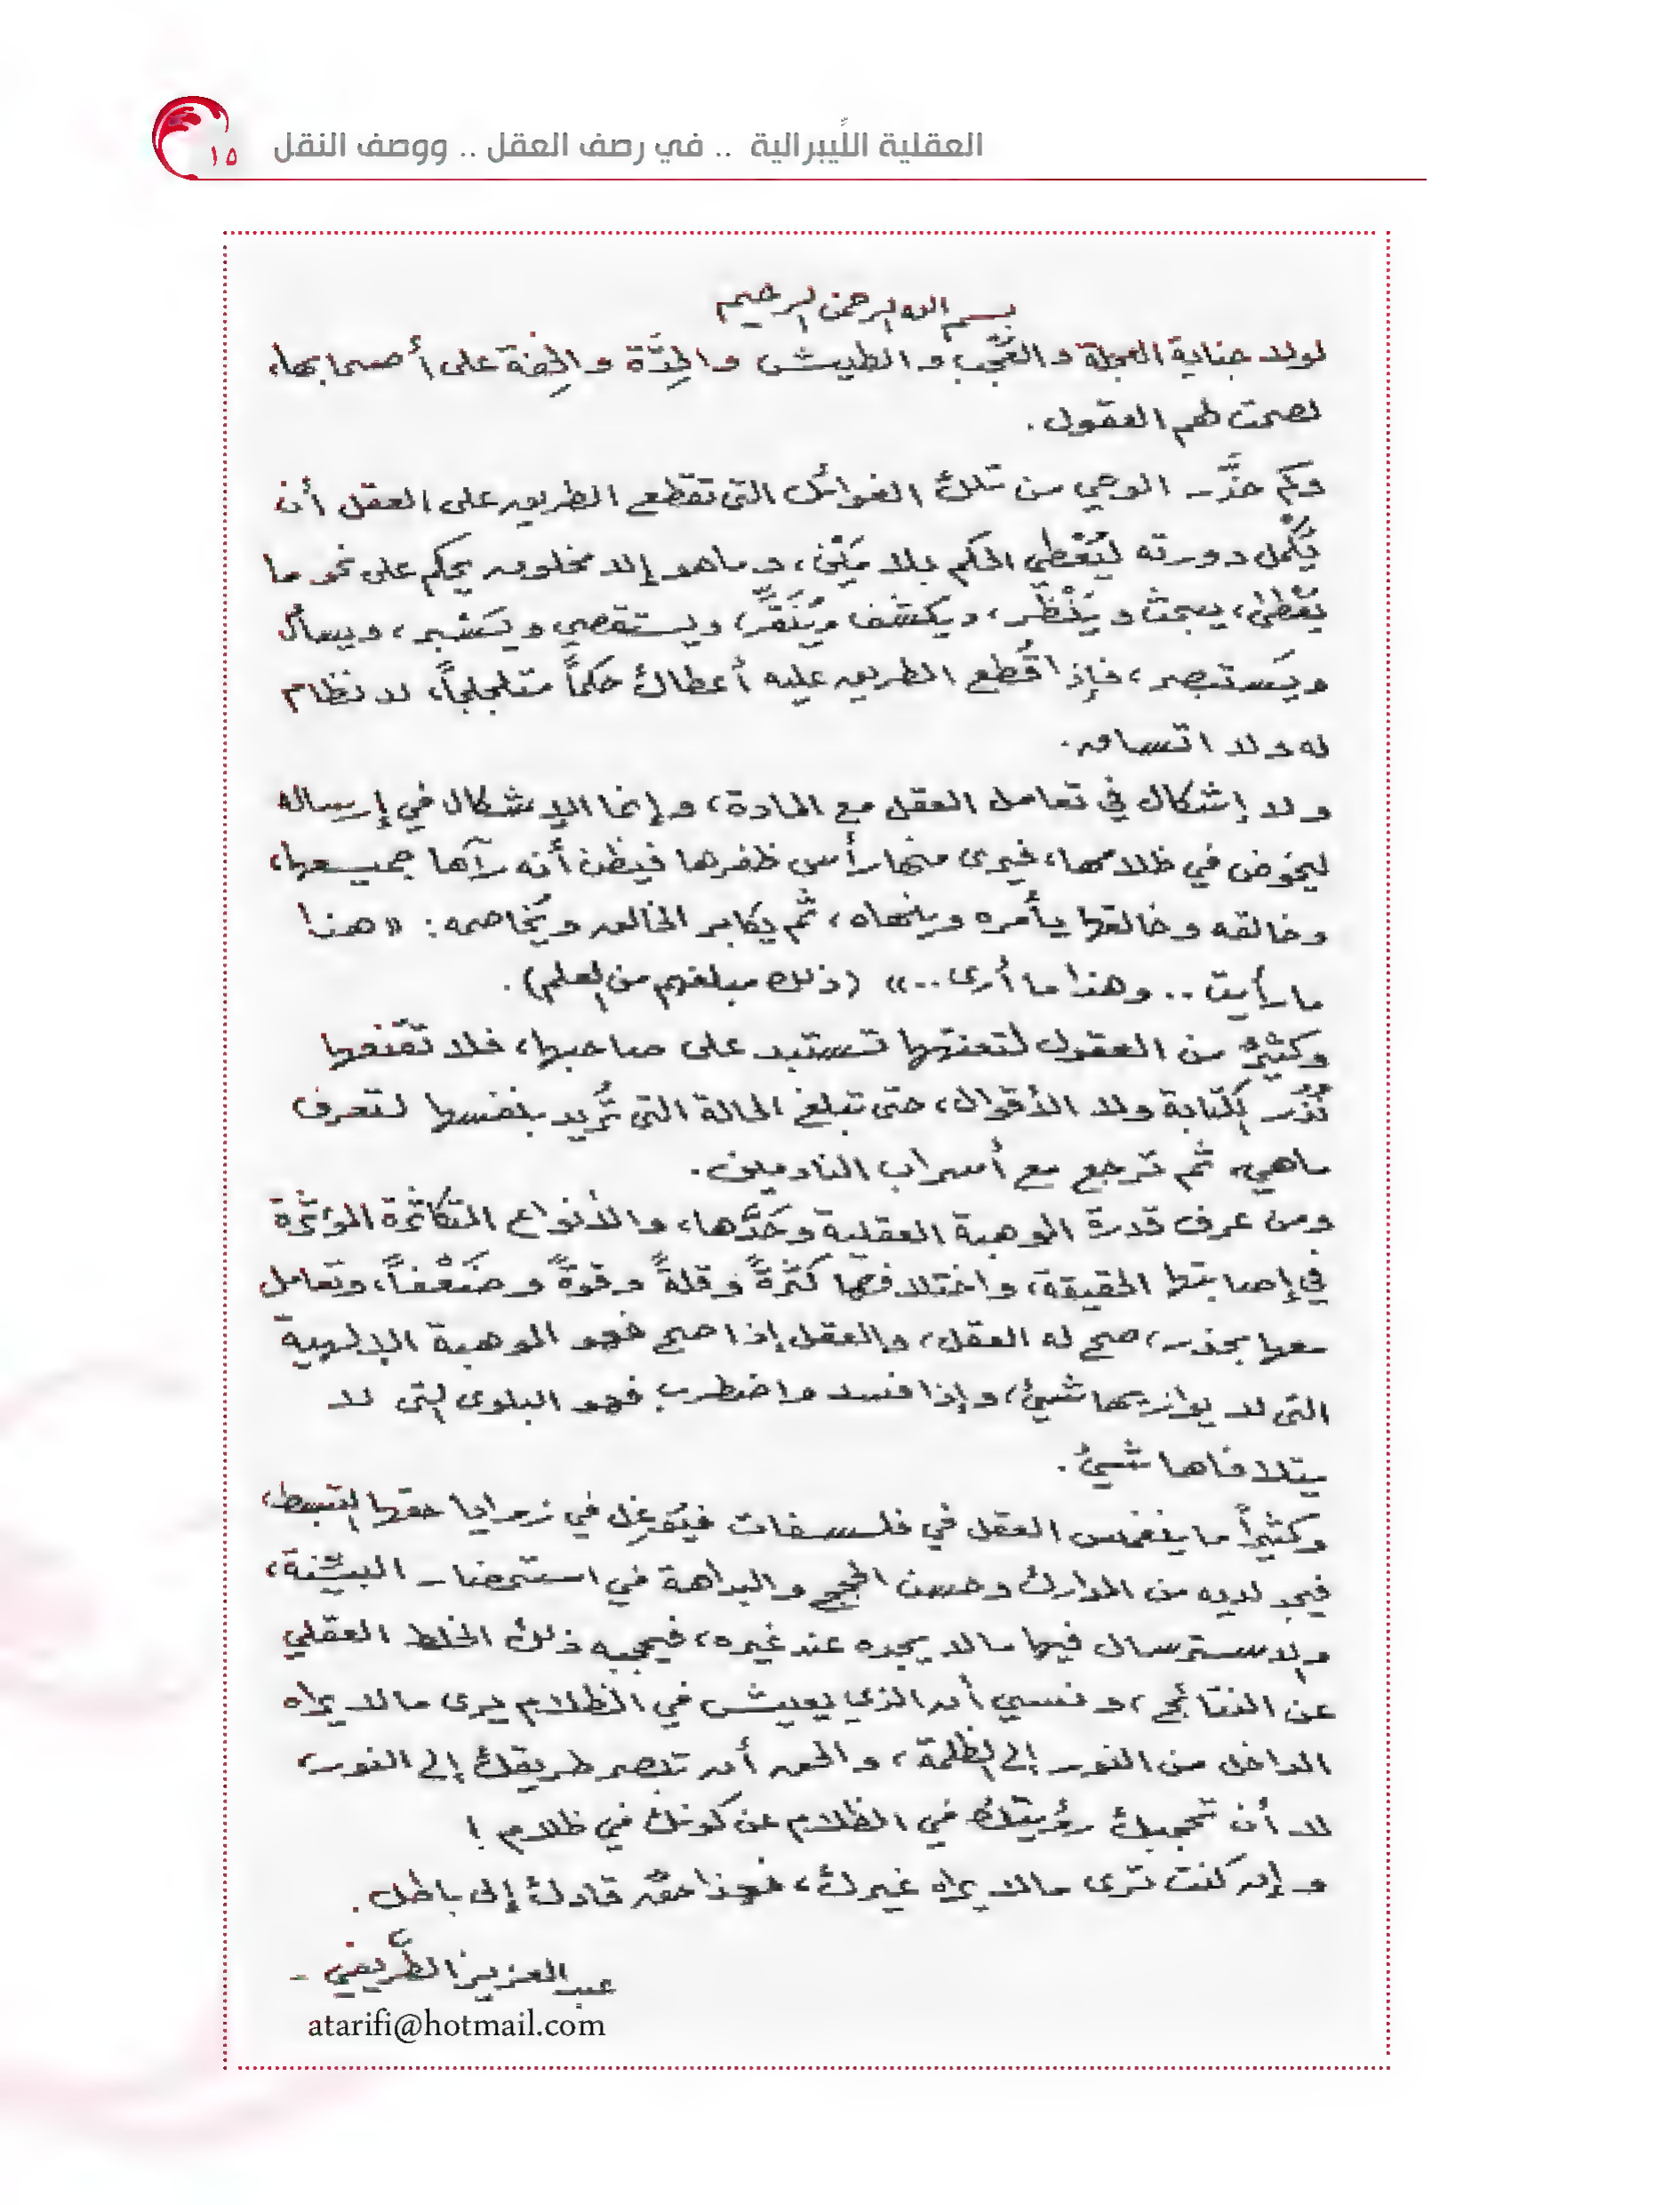 العقلية اللِّيبرالية .. في رصف العقل .. ووصف النقل
١٥
بسم الله الرحمن الرحيم
لولا جناية العجلة والعُجْب والطيش والحِدَّة والخِفة على أصحابها،
لصحت لهم العقول.
وكم حذَّر الوحي من تلك الغوائل التي تقطع الطريق على العقل أن
يُكْمل دورته ليُعْطي الحكم بلا مَيْن، وما هو إلا مخلوق يحكم على نحو ما
يُعْطَى، يبحث ويَنْظُر، ويكشف ويُنَقِّر، ويستقصي ويَسْبر، ويسأل
ويَستبصر، فإذا قُطع الطريق عليه أعطاك حكماً متلجلجاً، لا نظام
له ولا اتساق.
ولا إشكال في تعامل العقل مع المادة، وإنما الإشكال في إرساله
ليخوض في ظلامها، فيرى منها رأس ظفرها فيظن أنه رآها جميعها،
وخالقه وخالقها يأمره وينهاه، ثم يكابر الخالق ويُخاصمه: «هذا
ما رأيت .. وهذا ما أرى ..» (ذلك مبلغهم من العلم).
وكثيرٌ من العقول لتعنتها تستبد على صاحبها، فلا تقنعها
نُذُر الكتابة ولا الأقوال، حتى تبلغ الحالة التي تُريد بنفسها لتعرف
ماهي، ثم ترجع مع أسراب النادمين.
ومن عرف قدرة الموهبة العقلية وحَدَّها، والأنواع المتكاثرة المؤثرة
في إصابتها الحقيقة، واختلافها كثرةً وقلةً وقوةً وضَعْفاً، وتعامل
معها بحذر، صح له العقل، والعقل إذا صح فهو الموهبة الإلهية
التي لا يوازيها شيئ، وإذا فسد واضطرب فهو البلوى التي لا
يتلافاها شيئ.
وكثيراً ما ينغمس العقل في فلسفات فيُوغل في زوايا حقها التبسط،
فيجد لديه من المدارك وحسن الحجج والبداهة في استحضار البيِّنة،
والاسترسال فيها مالا يجده عند غيره، فيحجبه ذلك الخلط العقلي
عن النتائج، ونسي أن الذي يعيش في الظلام يرى مالا يراه
الداخل من النور إلى الظلمة، والحق أن تبصر طريقك إلى النور،
لا أن تحجبك رؤيتك في الظلام عن كونك في ظلام!
وإن كنت ترى مالا يراه غيرك، فهذا حق قادك إلى باطل.
عبدالعزيز الطَّريفي
atarifi@hotmail.com